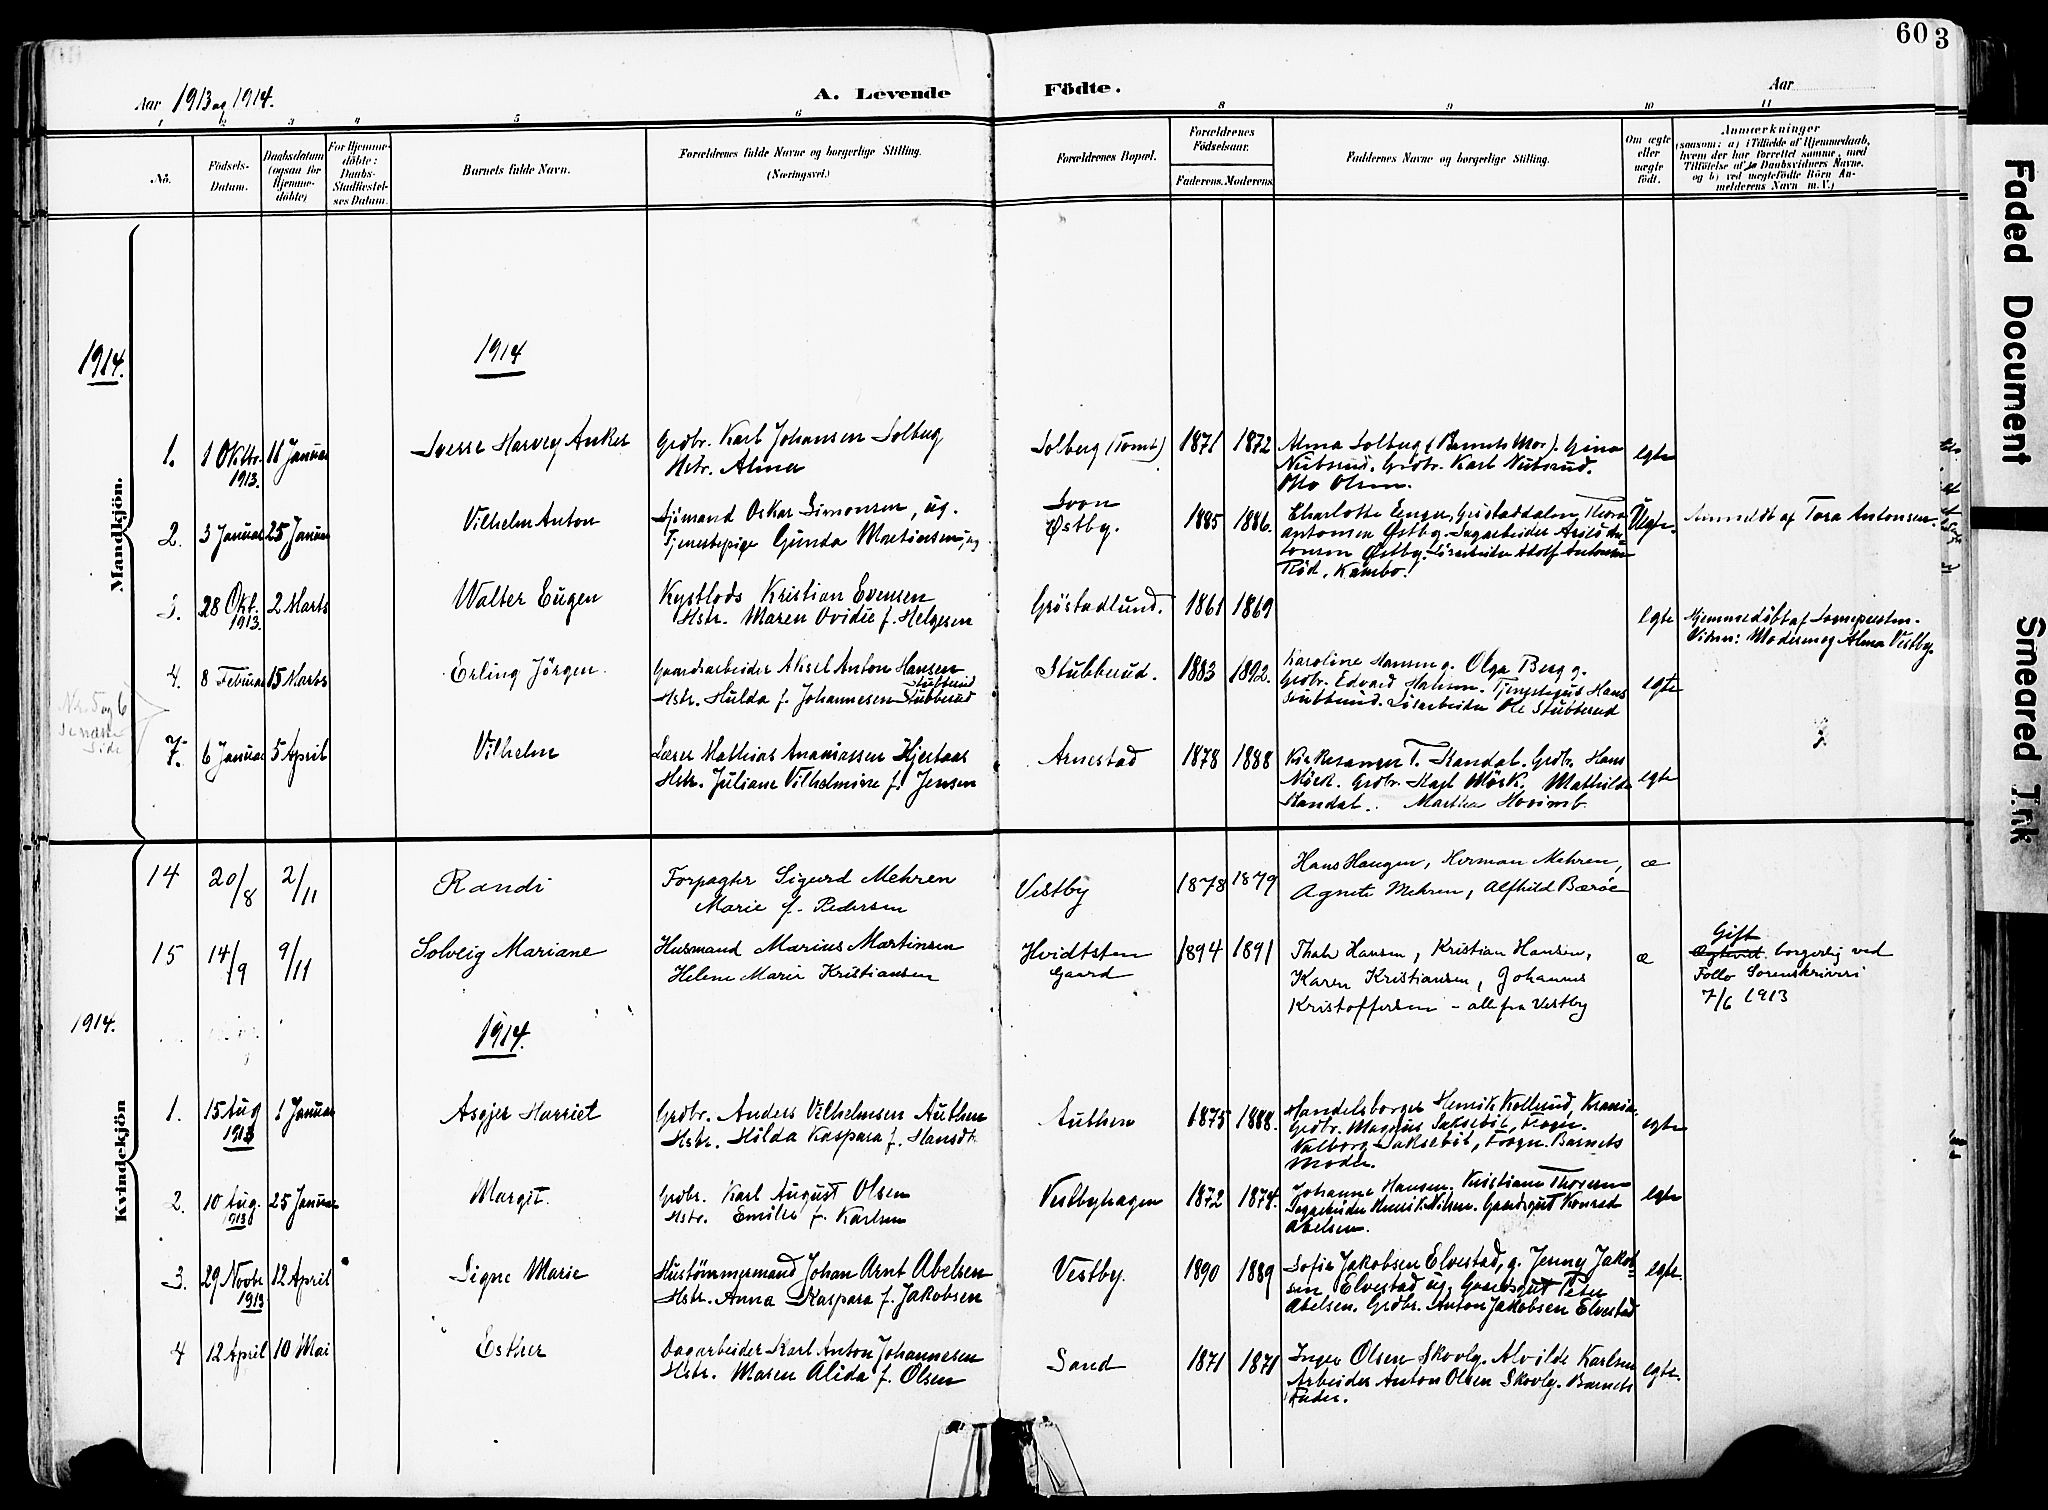 60 3
Aar 1913 og 1914.
A. Levende Födte.
Aar
1 2 3 4 5 6 8 9 10 11
No.
Födsels-Datum.
Daabsdatum (ogsaa for Hjemme-döbte)
For Hjemme-döbte: Daabs-Stadfæstel-ses Datum.
Barnets fulde Navn.
Forældrenes fulde Navne og borgerlige Stilling.
(Næringsvei.)
Forældrenes Bopæl.
Forældrenes Födselsaar.
Faderens. Moderens.
Faddernes Navne og borgerlige Stilling.
Om ægte eller uægte födt.
Anmærkninger
(saasom: a) i Tilfælde af Hjemmedaab, hvem der har forrettet samme, med Tilföielse af Daabsvidners Navne, og b) ved uægtefödte Börn An-melderens Navn m. V.)
Faded Document
Smeared Ink
Mandkjön.
1914.
1914
1. 1 Oktbr. 1913. 11 Januar Sverre Harvey Anker
Grdbr. Karl Johansen Solberg
Hstr. Alma
Solberg (Tomt) 1871 1872
Alma Solberg (Barnets Mor). Gina
Grdbr. Karl
Otto Olsen.
egte
2. 3 Januar 25 Januar Vilhelm Anton
Sjömand Oskar Simonsen, ug.
Tjenestepige Gunda Martinsen, ug
Soon
Østby. 1885 1886.
Charlotte Enger, Thora
Antonsen Østby. An-
tonsen Østby. Lösarbeider Adolf Antonsen
Röd, Kambo.
Uegte. Anmeldt af Tora Antonsen.
3. 28 Okt. 1913. 2 Marts Walter Eugen
Kystlods Kristian Evensen
Hstr. Maren Ovidie f. Helgesen
Gröstadlund. 1861 1869
egte
Hjemmedöbt af Sognepresten.
Vidner: Moderen og Alma Vestby.
4. 8 Februar 15 Marts Erling Jörgen.
Gaardsarbeider Aksel Anton Hansen Stubberud
Hstr. Hulda f. Johannesen Stubberud
Stubberud. 1883 1892.
Karoline Hansen g. Olga Berg g.
Grdbr. Edvard Hansen. Hans
Stubberud. Lösarbeider Ole Stubberud
egte
Nr. 5 og 6
Side
7. 6 Januar 5 April Vilhelm
Lærer Mathias Ananiassen Hjertaas
Hstr. Juliane Vilhelmine f. Jensen
Arnestad 1878 1888
Kirkesanger T. Kandal. Grdbr. Hans
Mörk. Grdbr. Karl Mörk. Mathilde
Kandal. Martha
egte
14 20/8 2/11 Randi
Forpagter Sigurd Mehren
Marie f. Pedersen
Vestby 1878 1879
Hans Haugen, Herman Mehren,
Agnete Mehren, Alfhild Bærøe
æ
15 14/9 9/11 Solveig Mariane
Husmand Marius Martinsen
Helene Marie Kristiansen
Hvidtsten
Gaard 1894 1891
Thale Hansen, Kristian Hansen,
Karen Kristiansen, Johannes
Kristoffersen - alle fra Vestby
æ
Gift
borgerlig ved
Follo Sorenskriveri
7/6 1913
1914.
1914.
Kvindekjön
1. 15 Aug 1913 1 Januar Asgjer Harriet
Grdbr. Anders Vilhelmsen Authen
Hstr. Hilda Kaspara f. Hansdt.
Authen 1875 1888.
Handelsborger Henrik Kollerud, Krania.
Grdbr. Magnus Sakseböl, Frogn.
Valborg Sakseböl, Frogn. Barnets
Moder.
egte
2. 10 Aug. 1913 25 Januar Margit.
Grdbr. Karl August Olsen
Hstr. Emilie f. Karlsen
Vestbyhagen 1872 1874.
Johanne Hansen. Kristiane Thoresen
Sagarbeider Henrik Nilsen. Gaardsgut Konrad
Abelsen.
egte
3. 29 Novbr 1913 12 April Signe Marie
Hustömmermand Johan Arnt Abelsen
Hstr. Anna Kaspara f. Jakobsen
Vestby. 1890 1889
Sofie Jakobsen Elvestad, g. Jenny Jakob-
sen, Elvestad ug. Gaardsgut Peter
Abelsen. Grdbr. Anton Jakobsen Elvestad
egte.
4 12 April 10 Mai Esther
Dagarbeider Karl Anton Johannesen
Hstr. Maren Alida f. Olsen
Sand 1871 1871
Inger Olsen Skovly. Alvilde Karlsen
Arbeider Anton Olsen Skovly. Barnets
Fader.
egte.